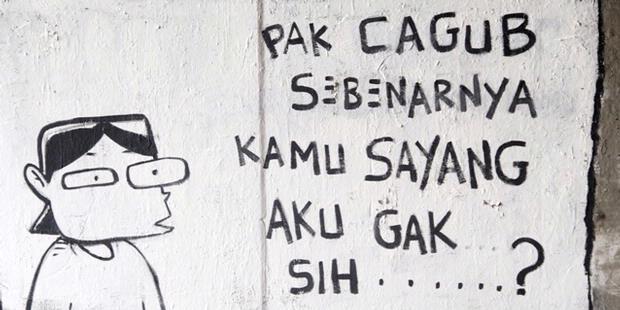 PAK CAGUB
SEBENARNYA
KAMU SAYANG
AKU GAK
SIH ......?